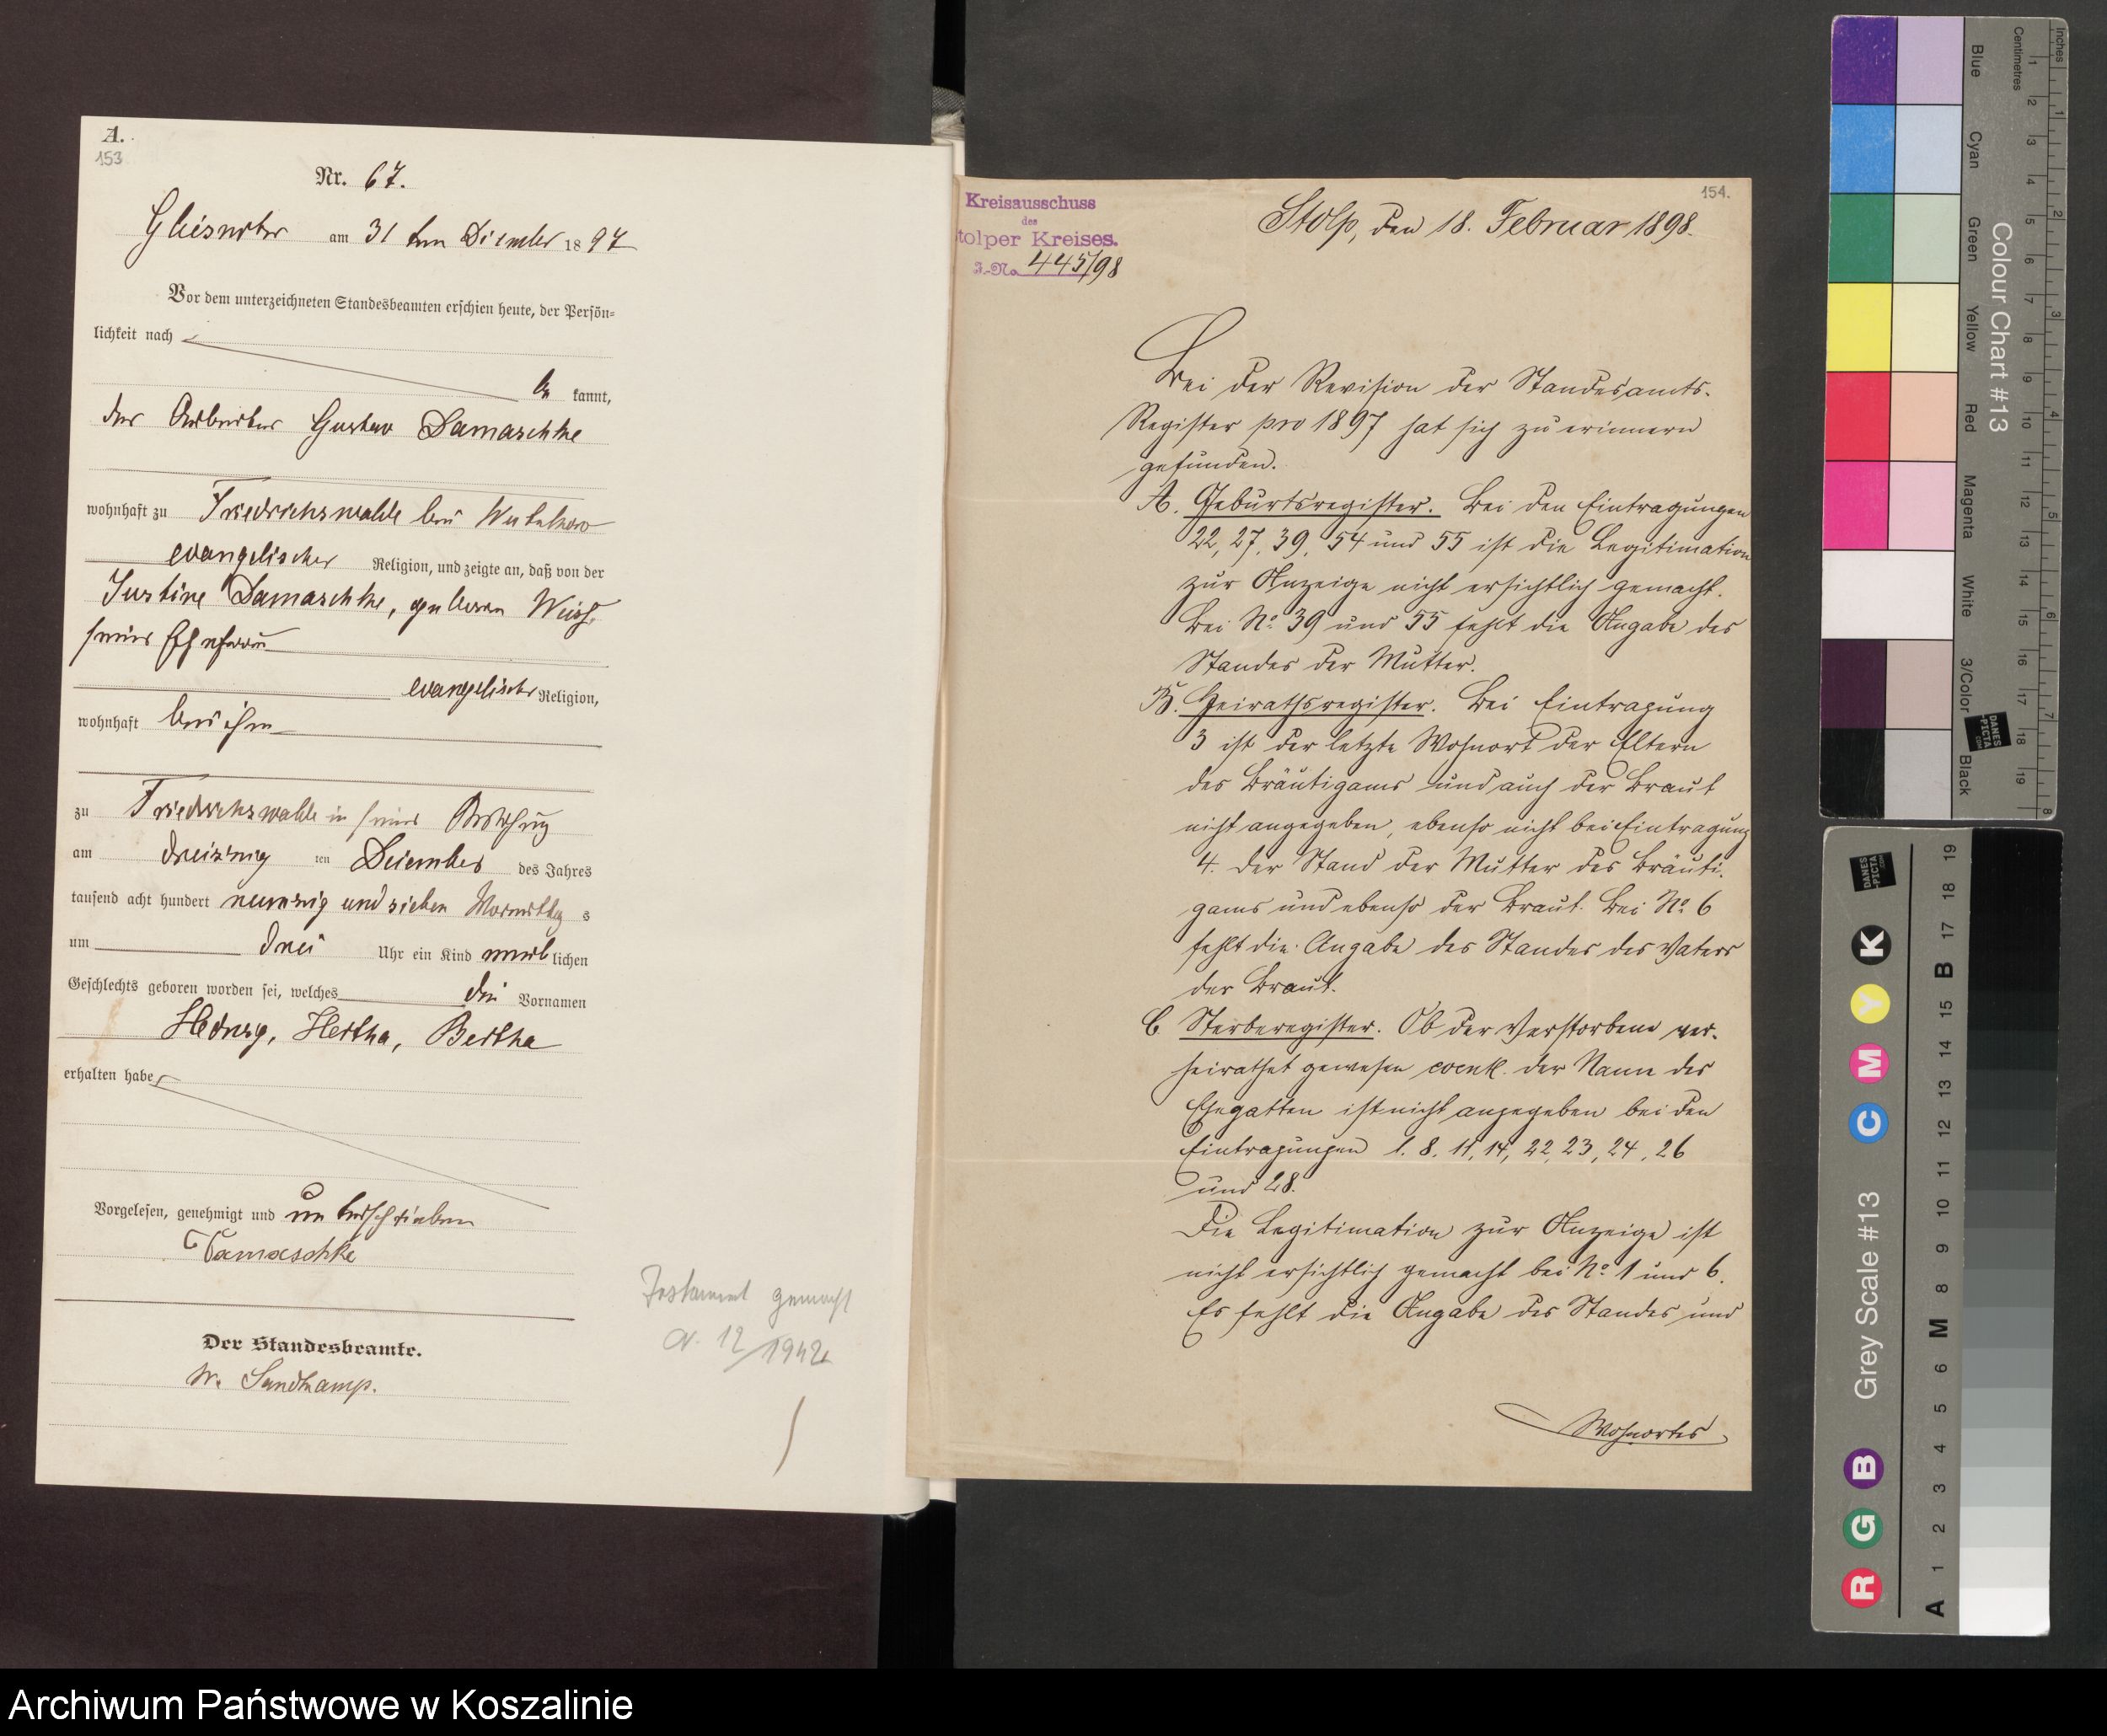 A.
153
Nr. 67.
Gliesnitz am 31 ten Dezember 1897
Vor dem unterzeichneten Standesbeamten erschien heute, der Persön=
lichkeit nach
be kannt,
der Arbeiter Gustav Damaschke
wohnhaft zu Friedrichswalde bei
evangelischer Religion, und zeigte an, daß von der
Justine Damaschke, geborenen
seiner Ehefrau
evangelischer Religion,
wohnhaft bei ihm
zu Friedrichswalde in seiner Behausung
am dreizig ten Dezember des Jahres
tausend acht hundert neunzig und sieben Vormittag s
um drei Uhr ein Kind weib lichen
Geschlechts geboren worden sei, welches die Vornamen
Hedwig, Hertha, Bertha
erhalten habe
Vorgelesen, genehmigt und unterschrieben
Damaschke
Der Standesbeamte.
W. Sandkamp.
Testament gemacht
N. 12/1942
Kreisausschuss
des
tolper Kreises.
J.-No. 445/98
154.
Stolp, den 18. Februar 1898.
Bei der Revision der Standesamts-
Register pro 1897 hat sich zu erinnern
gefunden.
A. Geburtsregister. Bei den Eintragungen
22, 27, 39, 54 und 55 ist die Legitimation
zur Anzeige nicht ersichtlich gemacht.
Bei No 39 und 55 fehlt die Angabe des
Standes der Mutter.
B. Heirathsregister. Bei Eintragung
3 ist der letzte Wohnort der Eltern
des Bräutigams und auch der Braut
nicht angegeben, ebenso nicht bei Eintragung
4. der Stand der Mutter des Bräuti-
gams und ebenso der Braut. Bei No 6
fehlt die Angabe des Standes des Vaters
der Braut.
C Sterberegister. Ob der Verstorbene ver-
heirathet gewesen event. der Name des
Ehegatten ist nicht angegeben bei den
Eintragungen 1. 8. 11, 14, 22, 23, 24, 26
und 28.
Die Legitimation zur Anzeige ist
nicht ersichtlich gemacht bei No 1 und 6.
Es fehlt die Angabe des Standes und
Wohnortes
Inches
Centimetres
1 2 3 4 5 6 7 8 9 10 11 12 13 14 15 16 17 18 19
1 2 3 4 5 6 7 8
Colour Chart #13
Blue
Cyan
Green
Yellow
Red
Magenta
White
3/Color
Black
DANES
-PICTA
.COM
DANES
-PICTA
.COM
Grey Scale #13
R G B C M Y K
A 1 2 3 4 5 6 M 8 9 10 11 12 13 14 15 B 17 18 19
Archiwum Państwowe w Koszalinie